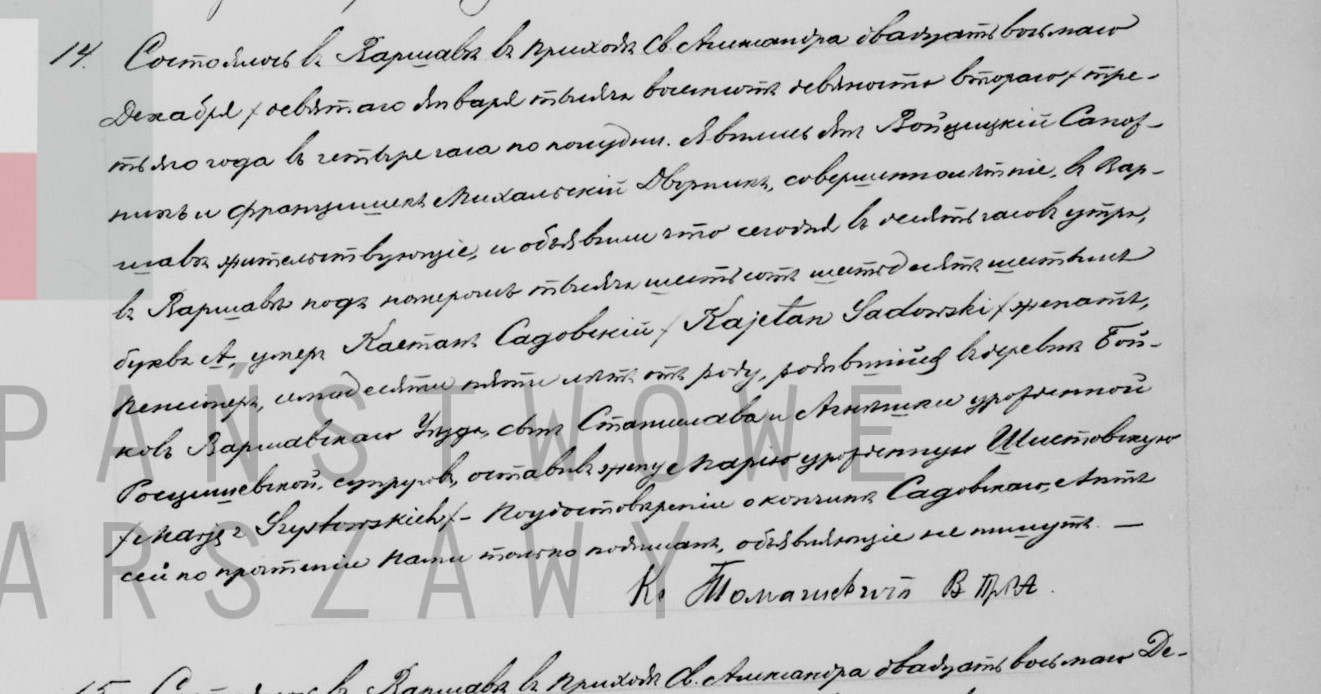 14. Состоялось въ Варшавѣ въ приходѣ Св. Александра двадцать восьмаго
Декабря / девятаго Января тысяча восемьсотъ девяносто втораго / тре-
тьяго года въ четыре часа по полудни. Явились Янъ Войцицкій Сапож-
никъ и Францишекъ Михальскій Дворникъ, совершеннолѣтніе, въ Вар-
шавѣ жительствующіе, и объявили что сегодня въ десять часовъ утра,
въ Варшавѣ подъ номеромъ тысяча шестьсотъ шестьдесятъ шестымъ
буква А, умеръ Каетанъ Садовскій / Kajetan Sadowski / женатъ,
пенсіонеръ, семидесяти пяти лѣтъ отъ роду, родившійся въ деревнѣ Бой-
ковѣ Варшавскаго Уѣзда, сынъ Станислава и Агнѣшки урожденной
Росцишевской, супруговъ, оставивъ жену Марію урожденную Шистовскую
/ Maryę z Szystowskich / - По удостовѣреніи о кончинѣ Садовскаго, Актъ
сей по прочтеніи Нами только подписанъ, объявляющіе не пишутъ. —
Кс Томашевичъ В П А.
15. Состоялось въ Варшавѣ въ приходѣ Св. Александра двадцать восьмаго Де-
PAŃSTWOWE
ARSZAWY